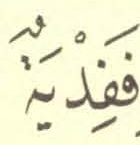 فَفِدْيَةٌ